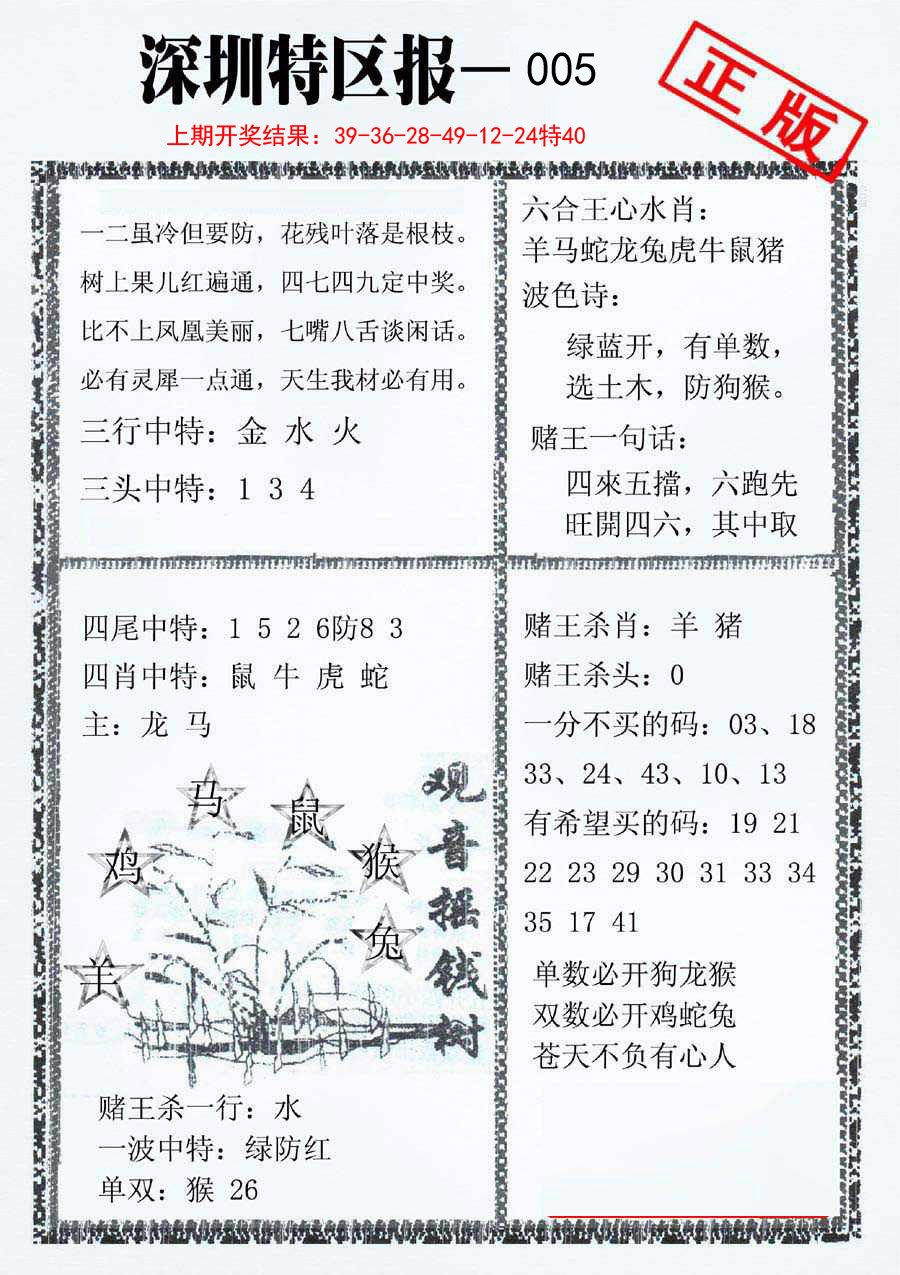 深圳特区报—005
正版
上期开奖结果：39-36-28-49-12-24特40
一二虽冷但要防，花残叶落是根枝。
树上果儿红遍通，四七四九定中奖。
比不上凤凰美丽，七嘴八舌谈闲话。
必有灵犀一点通，天生我材必有用。
三行中特：金 水 火
三头中特：1 3 4
六合王心水肖：
羊马蛇龙兔虎牛鼠猪
波色诗：
绿蓝开，有单数，
选土木，防狗猴。
赌王一句话：
四來五擋，六跑先
旺開四六，其中取
四尾中特：1 5 2 6防8 3
四肖中特：鼠 牛 虎 蛇
主：龙 马
马
鼠
鸡
猴
兔
羊
观音摇钱树
赌王杀一行：水
一波中特：绿防红
单双：猴 26
赌王杀肖：羊 猪
赌王杀头：0
一分不买的码：03、18
33、24、43、10、13
有希望买的码：19 21
22 23 29 30 31 33 34
35 17 41
单数必开狗龙猴
双数必开鸡蛇兔
苍天不负有心人